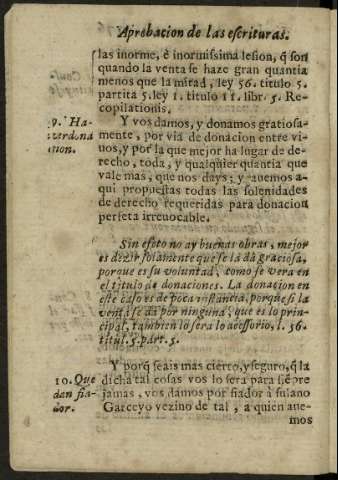 Aprobacion de las escrituras.
las inorme, è inormissima lesion, q̃ son
quando la venta se haze gran quantia
menos que la mitad, ley 56. titulo 5.
partita 5. ley 1. titulo 11. libr. 5. Re-
copilationis.
9. Ha-
zer dona
tion.
Y vos damos, y donamos gratiosa-
mente, por via de donacion entre vi-
uos, y por la que mejor ha lugar de de-
recho, toda, y qualquier quantia que
vale mas, que nos days; y auemos a-
qui propuestas todas las solenidades
de derecho requeridas para donacion
perfeta irreuocable.
Sin esoto no ay buenas obras, mejor
es dezir solamente que se la dà graciosa,
porque es su voluntad, como se vera en
el titulo de donaciones. La donacion en
este caso es de poca instancia, porque si la
venta se dà por ninguna, que es lo prin-
cipal, tambien lo sera lo accessorio, l. 56.
titul. 5. part. 5.
10. Que
dan fia-
dor.
Y porq̃ seais mas cierto, y seguro, q̃ la
dicha tal cosas vos lo sera para siẽpre
jamas, vos damos por fiador à fulano
Garceyo vezino de tal, a quien aue-
mos